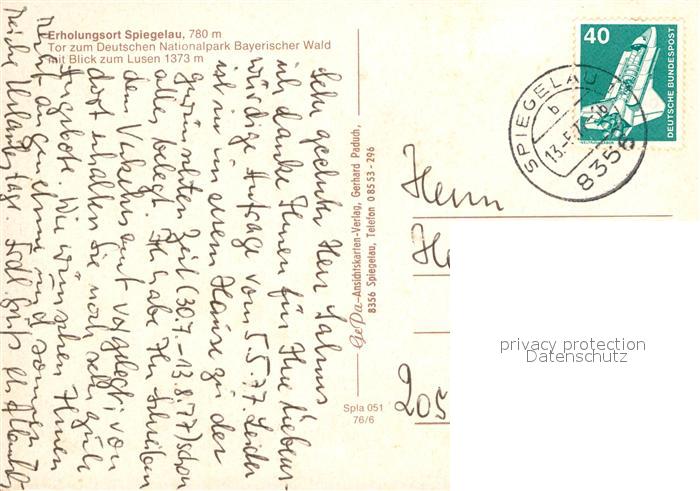 Erholungsort Spiegelau, 780 m
Tor zum Deutschen Nationalpark Bayerischer Wald
mit Blick zum Lusen 1373 m
Sehr geehrter Herr
ich danke Ihnen für Ihre liebens-
würdige Anfrage vom 5.5.77. Leider
ist in unserem Hause zu der
gewünschten Zeit (30.7.-13.8.77) schon
alles belegt. Ich habe Ihr Schreiben
dem Verkehrsamt vorgelegt, von
dort erhalten Sie noch sehr gute
Angebote. Wir wünschen Ihnen
recht angenehme und
Urlaubstage.
GePa-Ansichtskarten-Verlag, Gerhard Paduch,
8356 Spiegelau, Telefon 0 85 53 - 296
Spla 051
76/6
40
DEUTSCHE BUNDESPOST
SPIEGELAU
b
8356
Herrn
205
privacy protection
Datenschutz